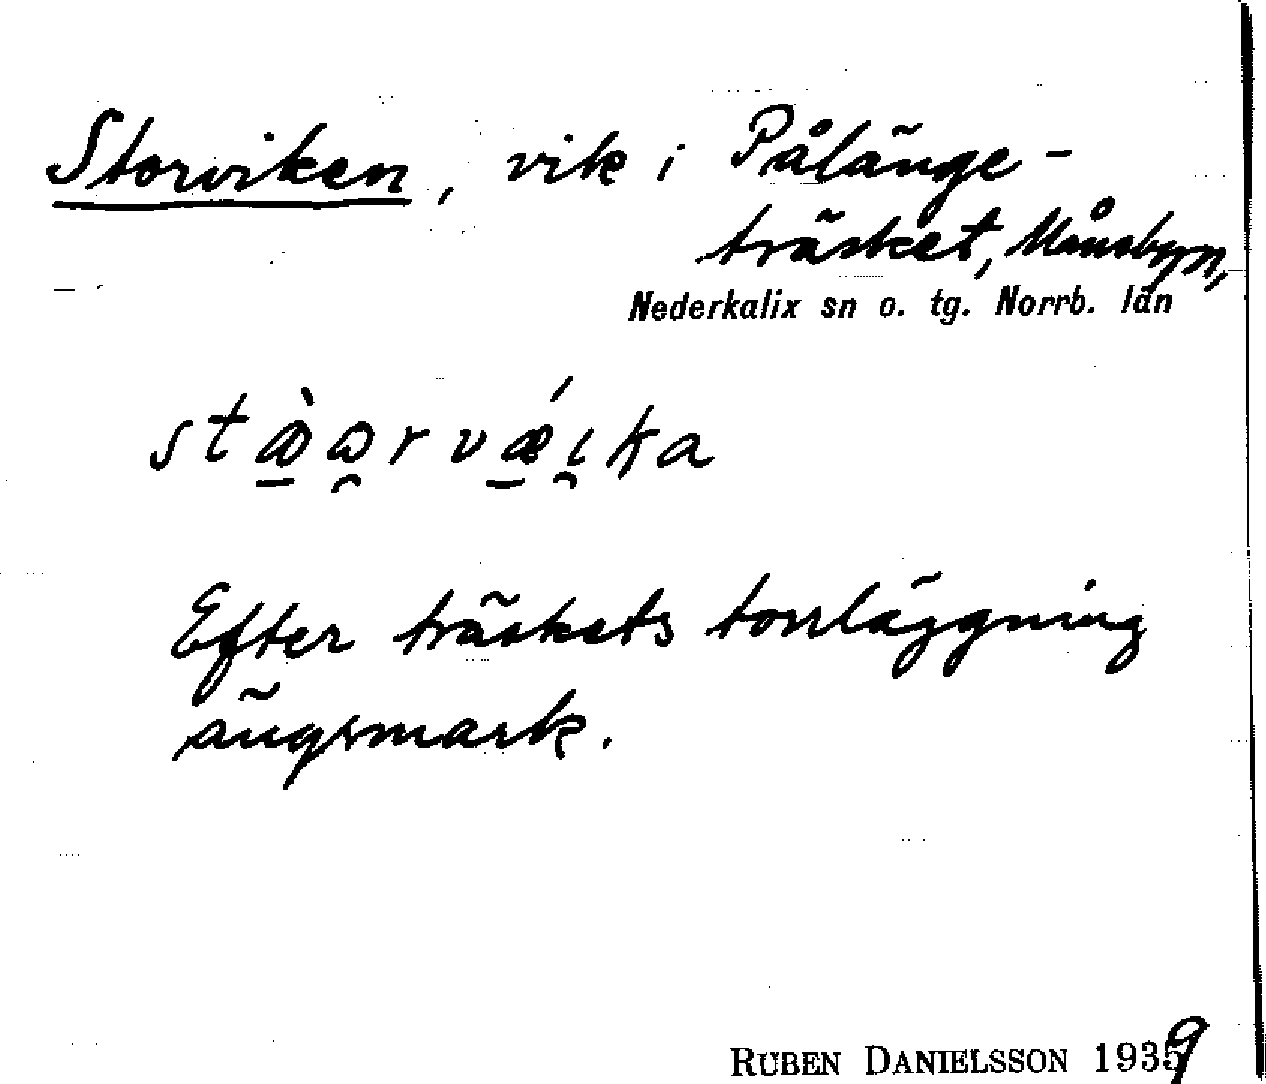 Storviken, vik i Pålänge-
träsket, Månsbyn,
Nederkalix sn o. tg. Norrb. län
Efter träskets torrläggning
ängsmark.
RUBEN DANIELSSON 1939